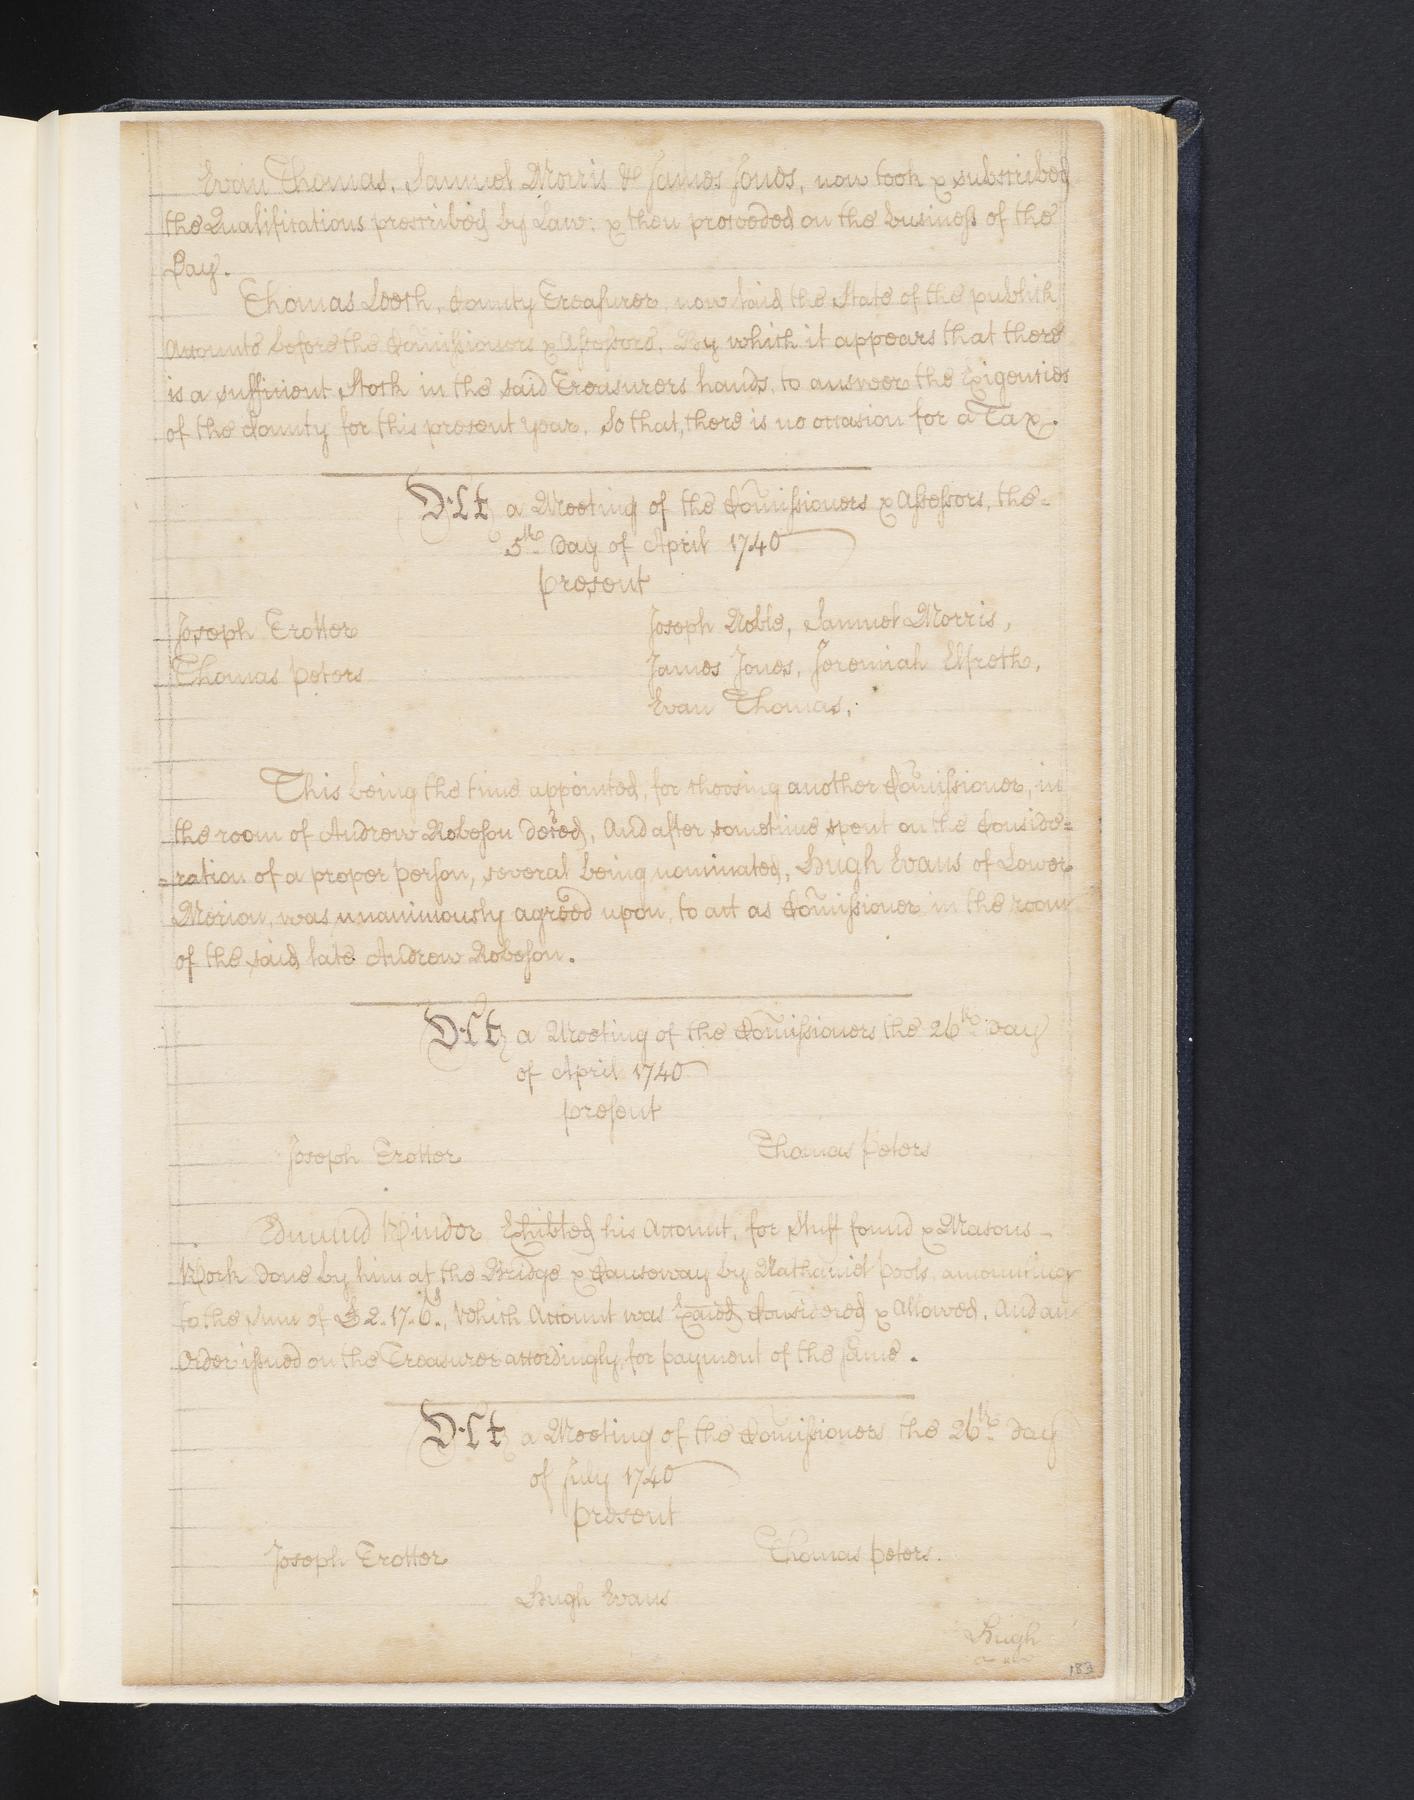 Evan Thomas, Samuel Morris & James Jones, now took & subscribed
the Qualifications prescribed by Law: & then proceeded on the business of the
Day.
Thomas Leech, County Treasurer, now laid the State of the publick
Accounts before the Com̃issioners & Assessors, By which it appears that there
is a sufficient Stock in the said Treasurers hands, to answer the Exigencies
of the County for this present year, So that, there is no occasion for a Tax.
At a Meeting of the Com̃issioners & Assessors, the
5th. Day of April 1740
present
Joseph Trotter Joseph Noble, Samuel Morris,
Thomas Peters James Jones, Jeremiah Elfreth,
Evan Thomas,
This being the time appointed, for choosing another Com̃issioner, in
the room of Andrew Robeson Deced, And after sometime spent on the Conside=
=ration of a proper person, several being nominated, Hugh Evans of Lower
Merion, was unanimously agreed upon, to act as Com̃issioner in the room
of the said late Andrew Robeson.
At a Meeting of the Com̃issioners the 26th. Day
of April 1740
present
Joseph Trotter Thomas Peters
Edmund Kinder Exhibited his Account, for Stuff found & Masons
Work done by him at the Bridge & Causeway by Nathaniel Pools, amounting
to the Sum of £2.17.6d., Which Account was Exaied Considered & Allowed, And an
Order issued on the Treasurer accordingly, for payment of the same.
At a Meeting of the Com̃issioners the 26th. day
of July 1740
present
Joseph Trotter Thomas Peters.
Hugh Evans
Hugh
183